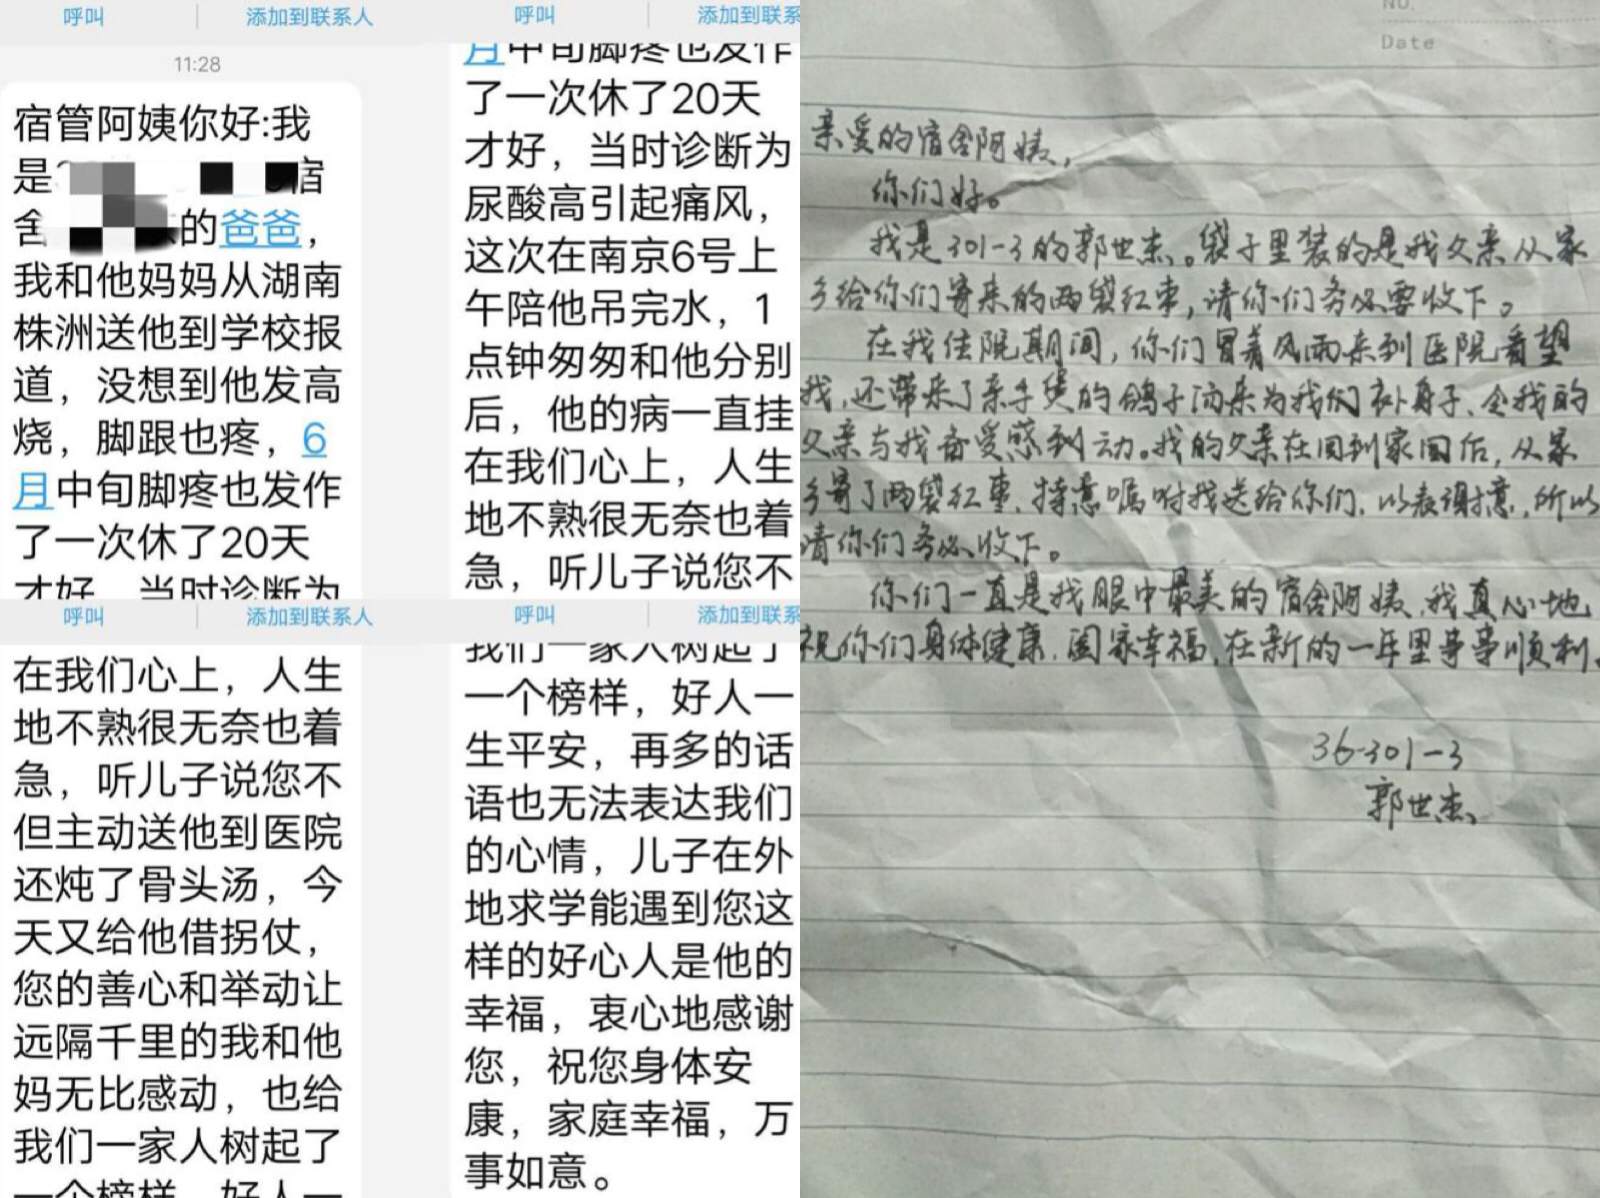 呼叫
添加到联系人
11:28
宿管阿姨你好:我
是
宿
舍
的爸爸，
我和他妈妈从湖南
株洲送他到学校报
道，没想到他发高
烧，脚跟也疼，6
月中旬脚疼也发作
了一次休了20天
才好，当时诊断为
呼叫
添加到联系
月中旬脚疼也发作
了一次休了20天
才好，当时诊断为
尿酸高引起痛风，
这次在南京6号上
午陪他吊完水，1
点钟匆匆和他分别
后，他的病一直挂
在我们心上，人生
地不熟很无奈也着
急，听儿子说您不
呼叫
添加到联系人
在我们心上，人生
地不熟很无奈也着
急，听儿子说您不
但主动送他到医院
还炖了骨头汤，今
天又给他借拐仗，
您的善心和举动让
远隔千里的我和他
妈无比感动，也给
我们一家人树起了
一个榜样，好人一
呼叫
添加到联系
我们一家人树起了
一个榜样，好人一
生平安，再多的话
语也无法表达我们
的心情，儿子在外
地求学能遇到您这
样的好心人是他的
幸福，衷心地感谢
您，祝您身体安
康，家庭幸福，万
事如意。
NO.
Date
亲爱的宿舍阿姨，
你们好。
我是301-3的郭世杰。袋子里装的是我父亲从家
乡给你们寄来的两袋红枣，请你们务必要收下。
在我住院期间，你们冒着风雨来到医院看望
我，还带来了亲手煲的鸽子汤来为我们补身子、令我的
父亲与我备受感到动。我的父亲在回到家回后，从家
乡寄了两袋红枣，特意嘱咐我送给你们，以表谢意，所以
请你们务必收下。
你们一直是我眼中最美的宿舍阿姨，我真心地
祝你们身体健康，阖家幸福，在新的一年里事事顺利。
36-301-3
郭世杰